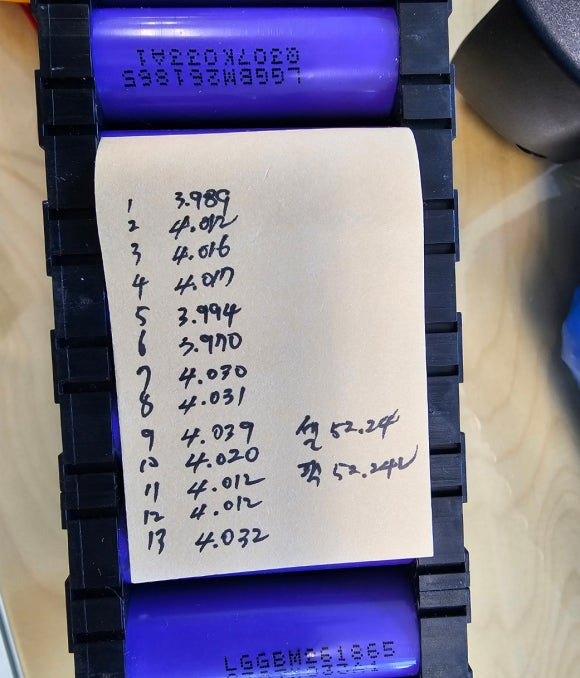 LGGBM261865
Q307K033A1
1 3.989
2 4.012
3 4.016
4 4.017
5 3.994
6 3.970
7 4.030
8 4.031
9 4.039 셀 52.24
10 4.020 팩 52.24V
11 4.012
12 4.012
13 4.032
LGGBM261865